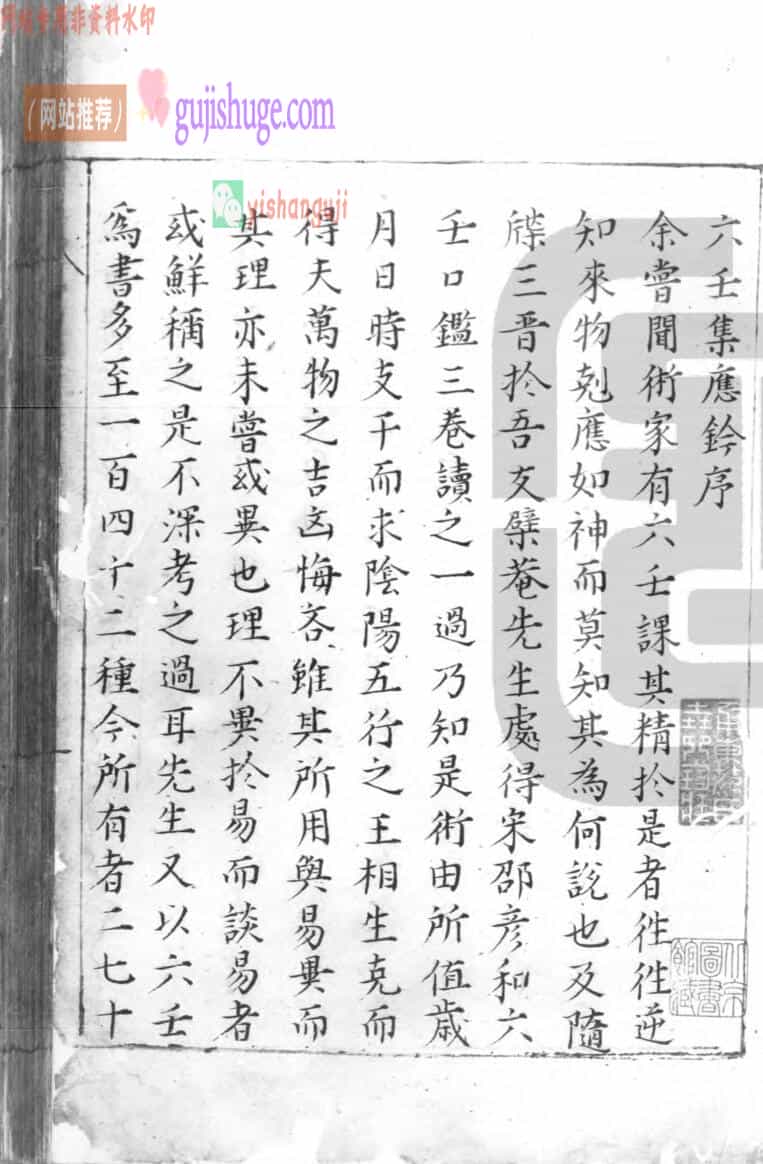 网站专用非资料水印
（网站推荐）
gujishuge.com
yishanguji
六壬集應鈐序
余嘗聞術家有六壬課其精於是者徃徃逆
知來物剋應如神而莫知其為何說也及隨
牒三晋於吾友檗菴先生處得宋邵彦和六
壬口鑑三卷讀之一過乃知是術由所值歲
月日時支干而求陰陽五行之王相生克而
得夫萬物之吉凶悔吝雖其所用與易異而
其理亦未嘗或異也理不異於易而談易者
或鮮稱之是不深考之過耳先生又以六壬
為書多至一百四十二種今所有者二七十
圖書